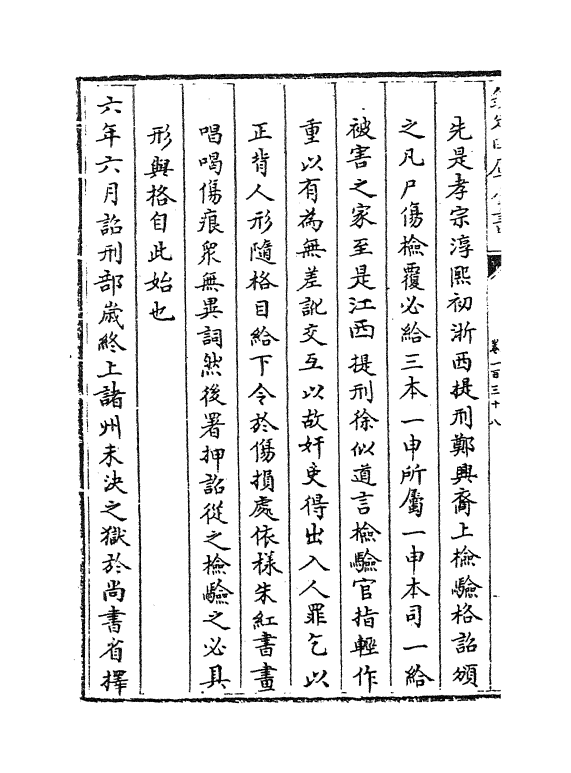 欽定四庫全書
卷一百三十八
先是孝宗淳熙初浙西提刑鄭興裔上檢驗格詔頒
之凡尸傷檢覆必給三本一申所屬一申本司一給
被害之家至是江西提刑徐似道言檢驗官指輕作
重以有為無差訛交互以故奸吏得出入人罪乞以
正背人形隨格目給下令於傷損處依樣朱紅書畫
唱喝傷痕衆無異詞然後署押詔從之檢驗之必具
形與格自此始也
六年六月詔刑部歳終上諸州未決之獄於尚書省擇